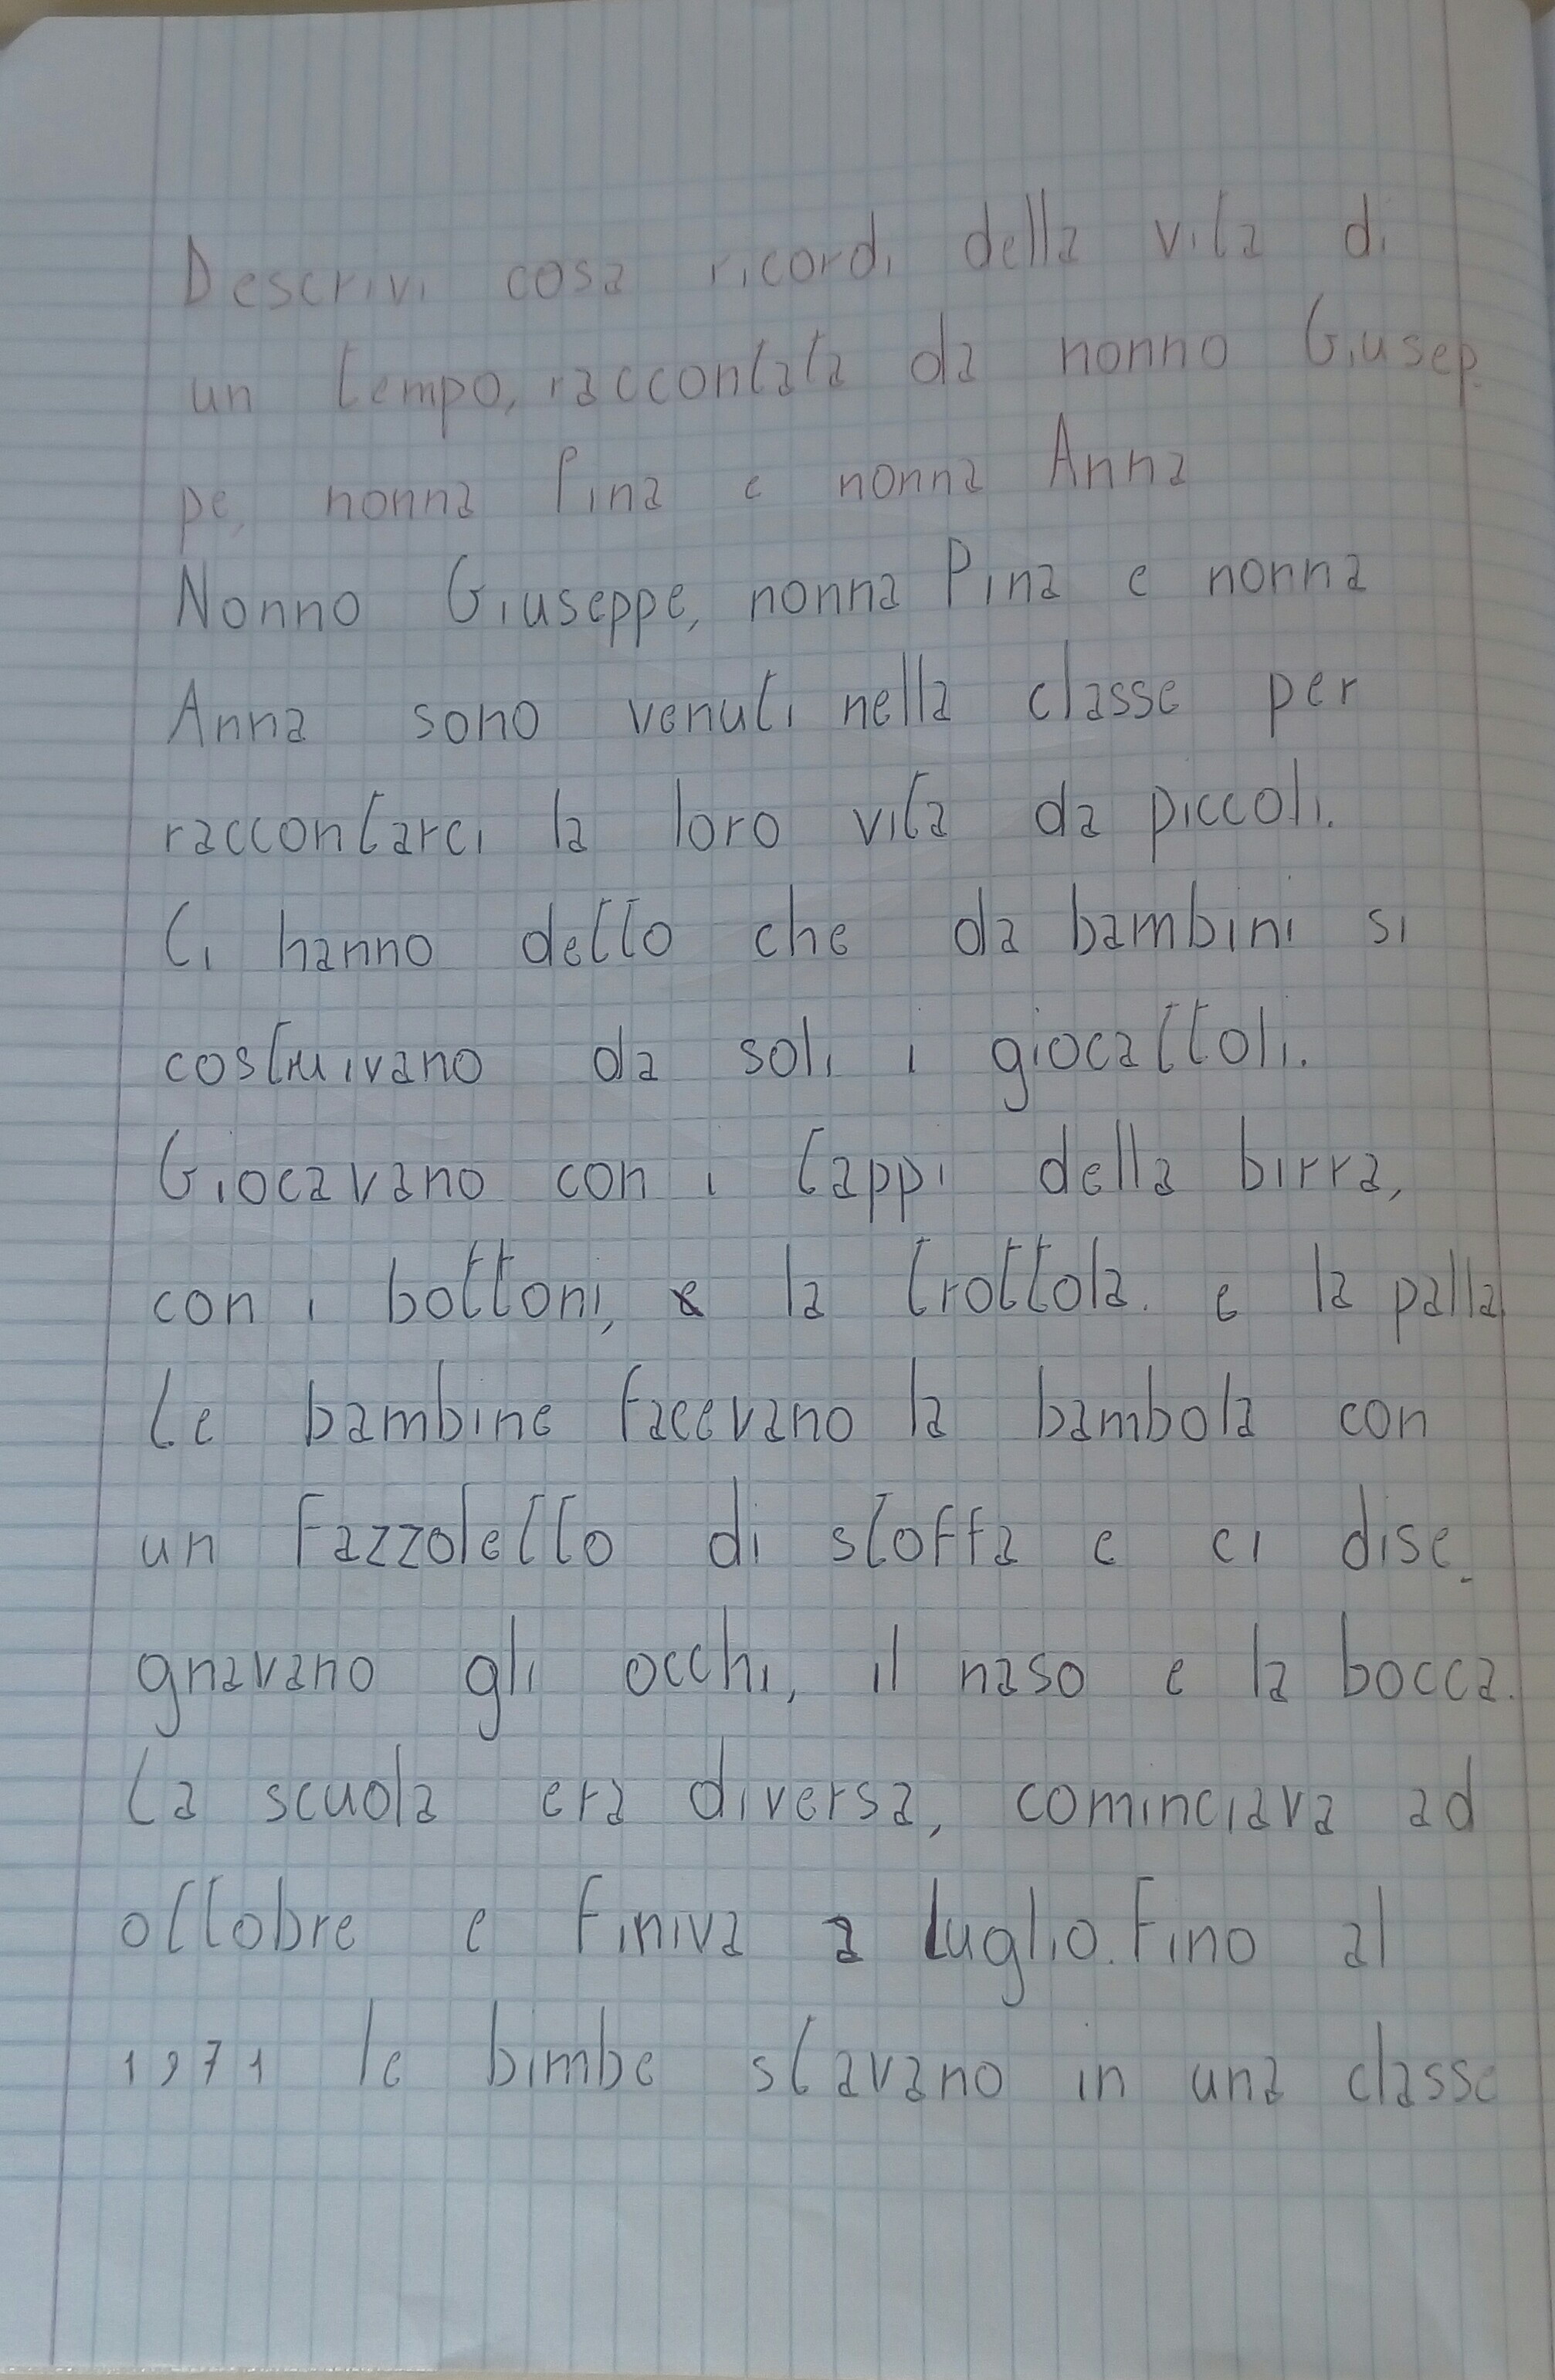 Descrivi cosa ricordi della vita di
un tempo, raccontata da nonno Giusep-
pe, nonna Pina e nonna Anna
Nonno Giuseppe, nonna Pina e nonna
Anna sono venuti nella classe per
raccontarci la loro vita da piccoli.
Ci hanno detto che da bambini si
costruivano da soli i giocattoli.
Giocavano con i tappi della birra,
con i bottoni, la trottola. e la palla
Le bambine facevano la bambola con
un fazzoletto di stoffa e ci dise-
gnavano gli occhi, il naso e la bocca.
La scuola era diversa, cominciava ad
ottobre e finiva a luglio. Fino al
1971 le bimbe stavano in una classe